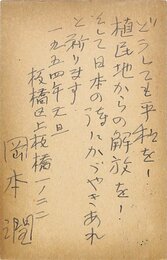 どうしても平和を！
植民地からの解放を！
そして日本の詩にかゞやきあれ
と祈ります
一九五四年元旦
板橋区上板橋一ノ二二
岡本 潤